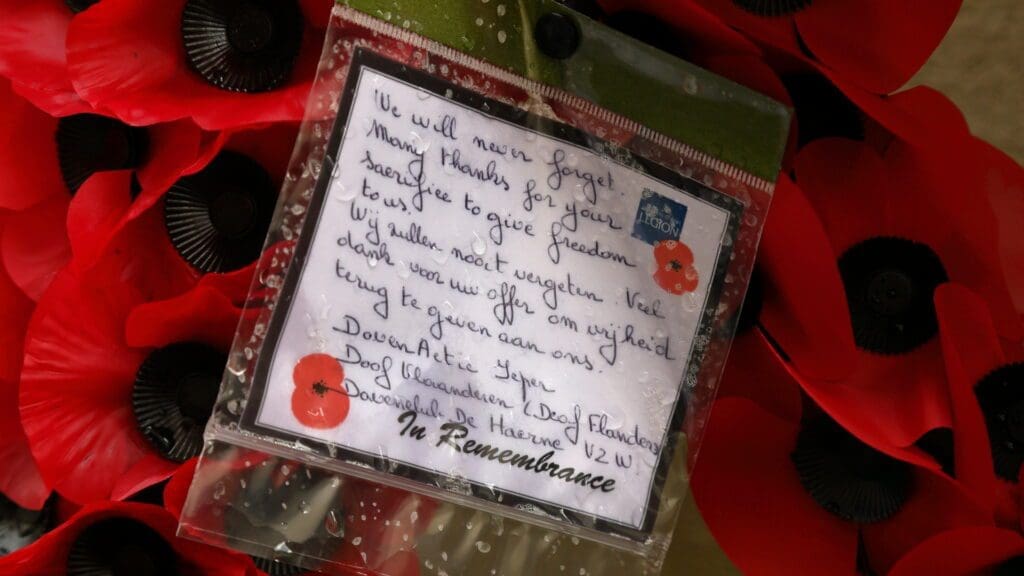 We will never forget
Many thanks for your
sacrifice to give freedom
to us.
LEGION
Wij zullen nooit vergeten. Veel
dank voor uw offer om vrijheid
terug te geven aan ons.
DovenActie Ieper
Doof Vlaanderen (Deaf Flanders)
Dovenclub De Haerne VZW.
In Remembrance